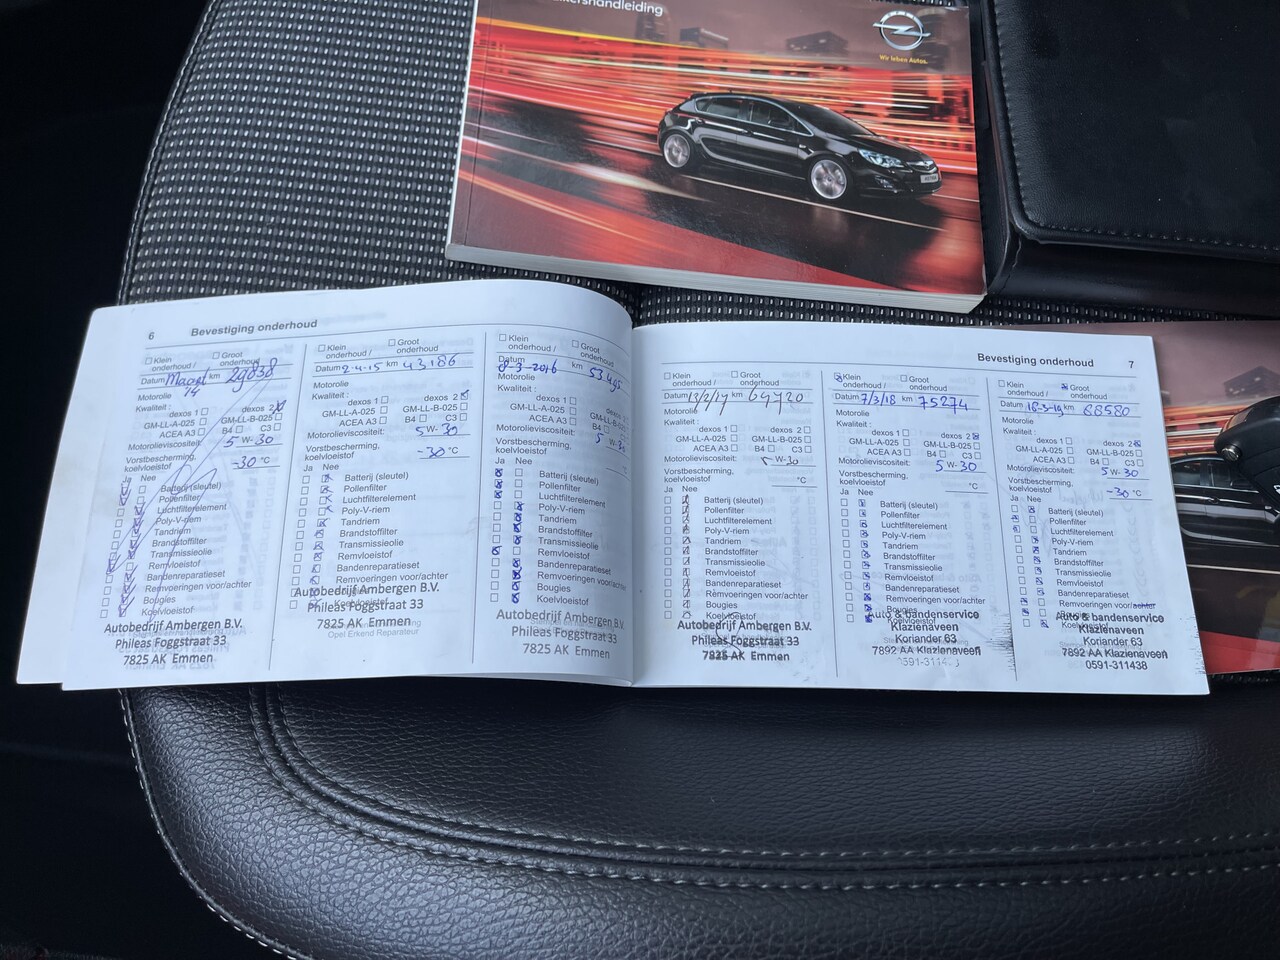 kershandleiding
Wir leben Autos.
6 Bevestiging onderhoud
Klein onderhoud / Groot onderhoud
Datum Maart 14 km 29838
Motorolie
Kwaliteit :
dexos 1 dexos 2
GM-LL-A-025 GM-LL-B-025
ACEA A3 B4 C3
Motorolieviscositeit: 5 W-30
Vorstbescherming, koelvloeistof -30 °C
Ja Nee
Batterij (sleutel)
Pollenfilter
Luchtfilterelement
Poly-V-riem
Tandriem
Brandstoffilter
Transmissieolie
Remvloeistof
Bandenreparatieset
Remvoeringen voor/achter
Bougies
Koelvloeistof
Autobedrijf Ambergen B.V.
Phileas Foggstraat 33
7825 AK Emmen
Klein onderhoud / Groot onderhoud
Datum 2-4-15 km 43186
Motorolie
Kwaliteit :
dexos 1 dexos 2
GM-LL-A-025 GM-LL-B-025
ACEA A3 B4 C3
Motorolieviscositeit: 5 W-30
Vorstbescherming, koelvloeistof -30 °C
Ja Nee
Batterij (sleutel)
Pollenfilter
Luchtfilterelement
Poly-V-riem
Tandriem
Brandstoffilter
Transmissieolie
Remvloeistof
Bandenreparatieset
Remvoeringen voor/achter
Autobedrijf Ambergen B.V.
Phileas Foggstraat 33
7825 AK Emmen
Opel Erkend Reparateur
Klein onderhoud / Groot onderhoud
Datum 8-3-2016 km 53495
Motorolie
Kwaliteit :
dexos 1 dexos 2
GM-LL-A-025 GM-LL-B-025
ACEA A3 B4 C3
Motorolieviscositeit: 5 W-30
Vorstbescherming, koelvloeistof °C
Ja Nee
Batterij (sleutel)
Pollenfilter
Luchtfilterelement
Poly-V-riem
Tandriem
Brandstoffilter
Transmissieolie
Remvloeistof
Bandenreparatieset
Remvoeringen voor/achter
Bougies
Koelvloeistof
Autobedrijf Ambergen B.V.
Phileas Foggstraat 33
7825 AK Emmen
Bevestiging onderhoud 7
Klein onderhoud / Groot onderhoud
Datum 13/2/17 km 64720
Motorolie
Kwaliteit :
dexos 1 dexos 2
GM-LL-A-025 GM-LL-B-025
ACEA A3 B4 C3
Motorolieviscositeit: 5 W-30
Vorstbescherming, koelvloeistof °C
Ja Nee
Batterij (sleutel)
Pollenfilter
Luchtfilterelement
Poly-V-riem
Tandriem
Brandstoffilter
Transmissieolie
Remvloeistof
Bandenreparatieset
Remvoeringen voor/achter
Bougies
Koelvloeistof
Autobedrijf Ambergen B.V.
Phileas Foggstraat 33
7825 AK Emmen
Klein onderhoud / Groot onderhoud
Datum 7/3/18 km 75274
Motorolie
Kwaliteit :
dexos 1 dexos 2
GM-LL-A-025 GM-LL-B-025
ACEA A3 B4 C3
Motorolieviscositeit: 5 W-30
Vorstbescherming, koelvloeistof °C
Ja Nee
Batterij (sleutel)
Pollenfilter
Luchtfilterelement
Poly-V-riem
Tandriem
Brandstoffilter
Transmissieolie
Remvloeistof
Bandenreparatieset
Remvoeringen voor/achter
Bougies
Koelvloeistof
Auto & bandenservice
Klazienaveen
Koriander 63
7892 AA Klazienaveen
Klein onderhoud / Groot onderhoud
Datum 18-3-19 km 88580
Motorolie
Kwaliteit :
dexos 1 dexos 2
GM-LL-A-025 GM-LL-B-025
ACEA A3 B4 C3
Motorolieviscositeit: 5 W-30
Vorstbescherming, koelvloeistof -30 °C
Ja Nee
Batterij (sleutel)
Pollenfilter
Luchtfilterelement
Poly-V-riem
Tandriem
Brandstoffilter
Transmissieolie
Remvloeistof
Bandenreparatieset
Remvoeringen voor/achter
Koelvloeistof
Auto & bandenservice
Klazienaveen
Koriander 63
7892 AA Klazienaveen
0591-311438